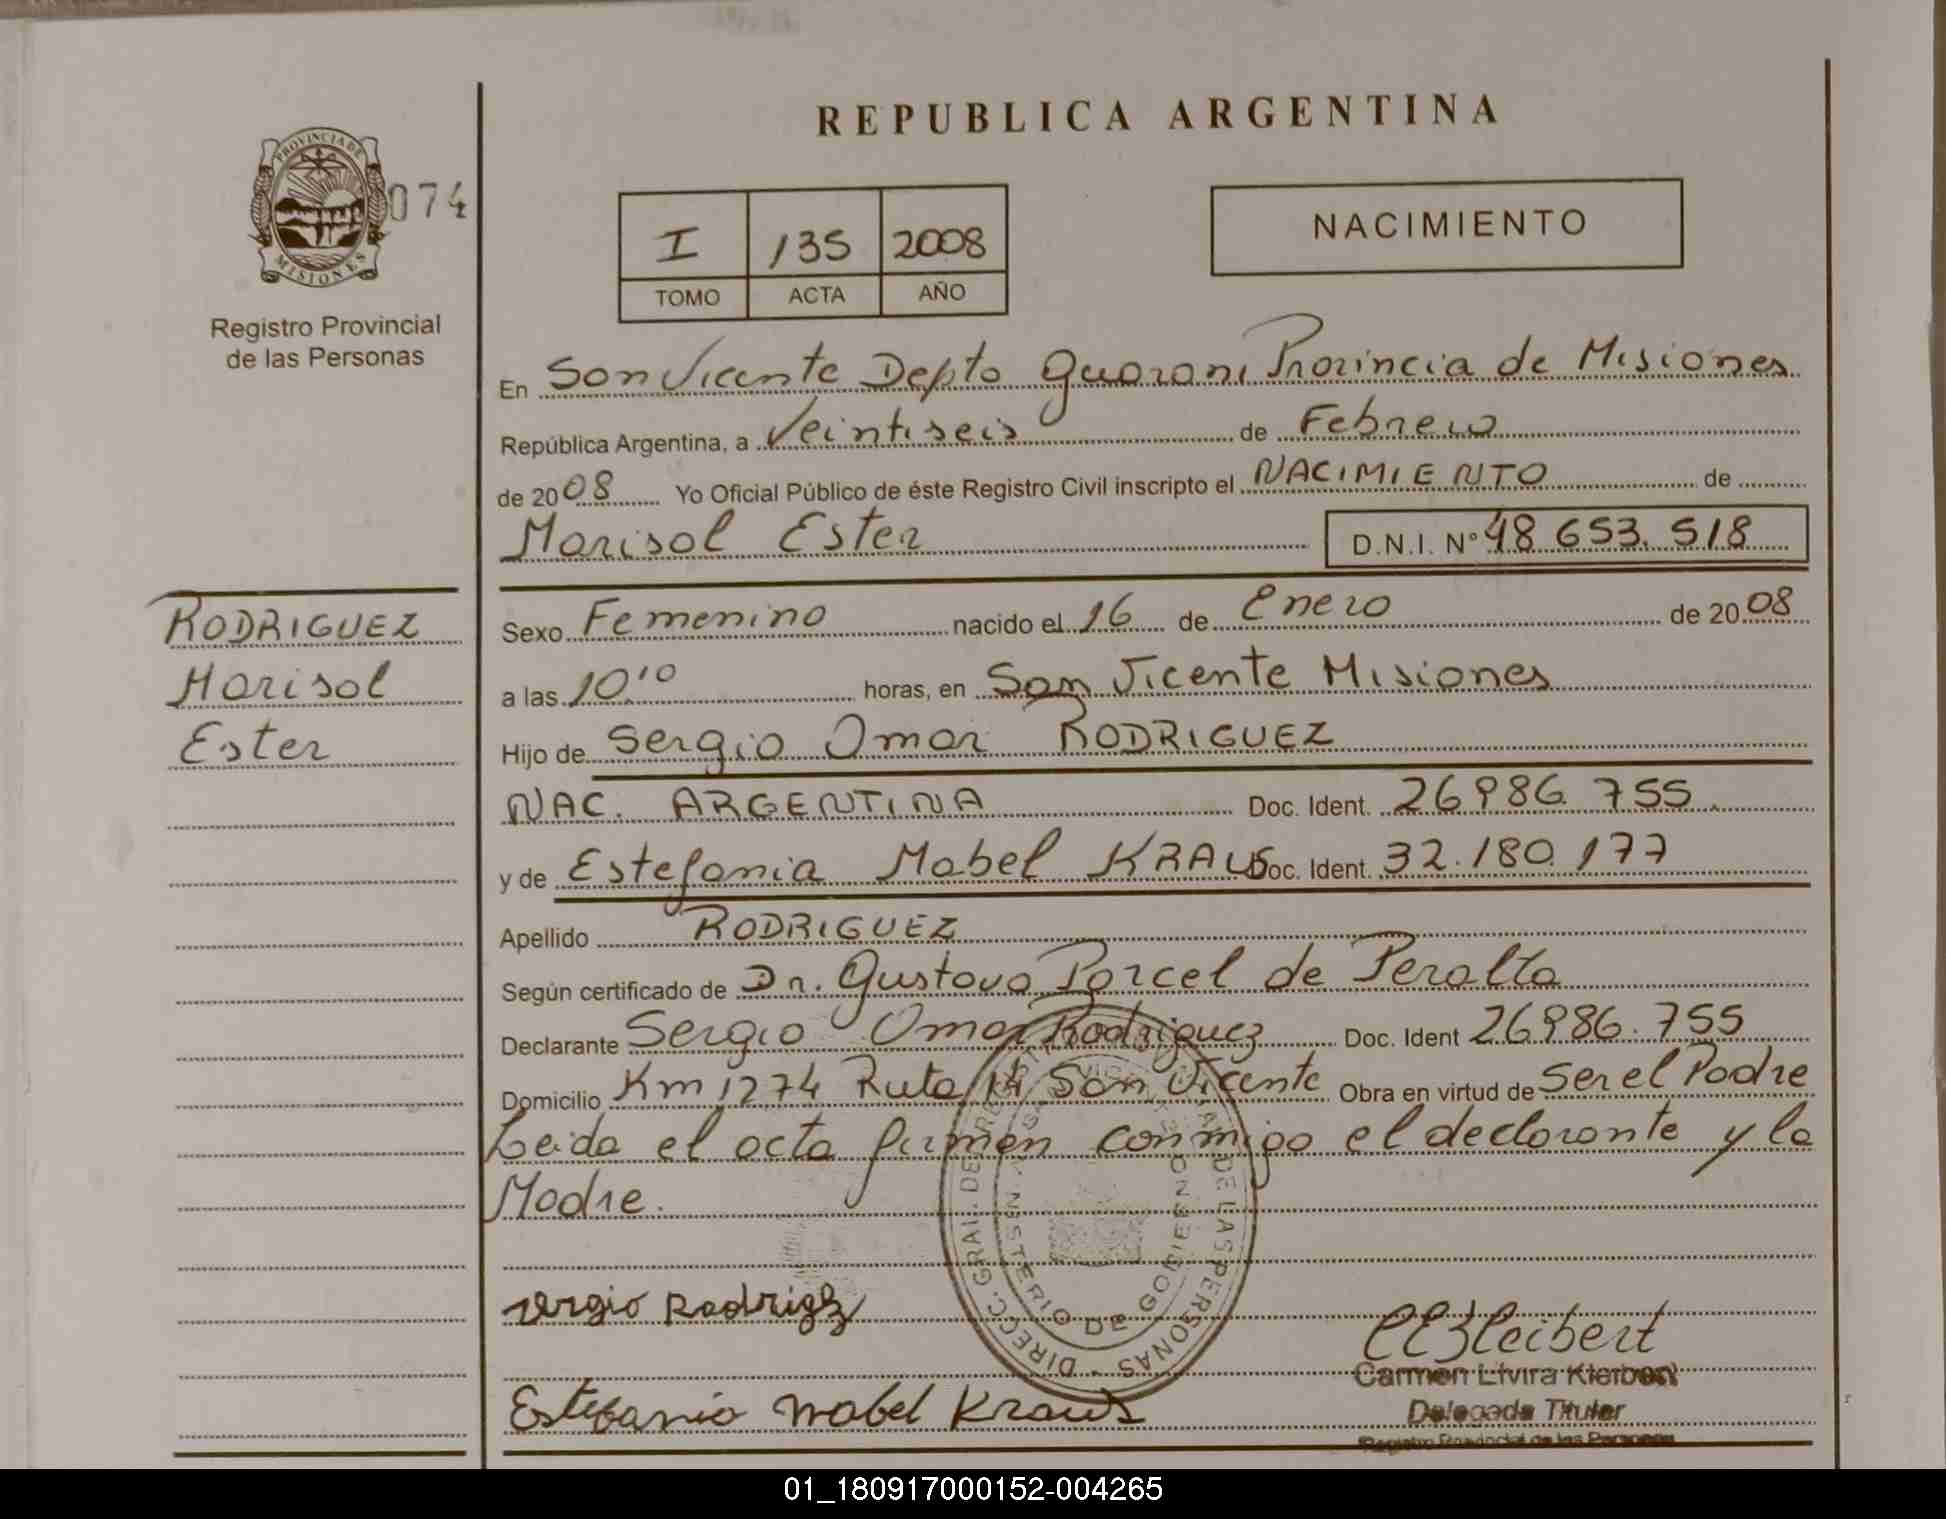 REPUBLICA ARGENTINA
PROVINCIA DE
MISIONES
074
Registro Provincial
de las Personas
I 135 2008
TOMO ACTA AÑO
NACIMIENTO
En San Vicente Depto Guarani Provincia de Misiones
República Argentina, a Veintiseis de Febrero
de 2008 Yo Oficial Público de éste Registro Civil inscripto el NACIMIENTO de
Marisol Ester D.N.I. N° 48 653.518
RODRIGUEZ
Marisol
Ester
Sexo Femenino nacido el 16 de Enero de 2008
a las 10'10 horas, en San Vicente Misiones
Hijo de Sergio Omar RODRIGUEZ
NAC. ARGENTINA Doc. Ident. 26986.755
y de Estefania Mabel KRAUS Doc. Ident. 32.180.177
Apellido RODRIGUEZ
Según certificado de Dr. Gustavo Porcel de Peralta
Declarante Sergio Omar Rodriguez Doc. Ident 26986.755
Domicilio Km 1274 Ruta 14 San Vicente Obra en virtud de Ser el Padre
Leida el acta firman conmigo el declarante y la
Madre.
DIRECC. GRAL. DE LAS PERSONAS
MINISTERIO DE GOBIERNO
Sergio Rodrigz
Estefania Mabel Kraus
Carmen Elvira Kleibert
Delegada Titular
Registro Provincial de las Personas
01_180917000152-004265